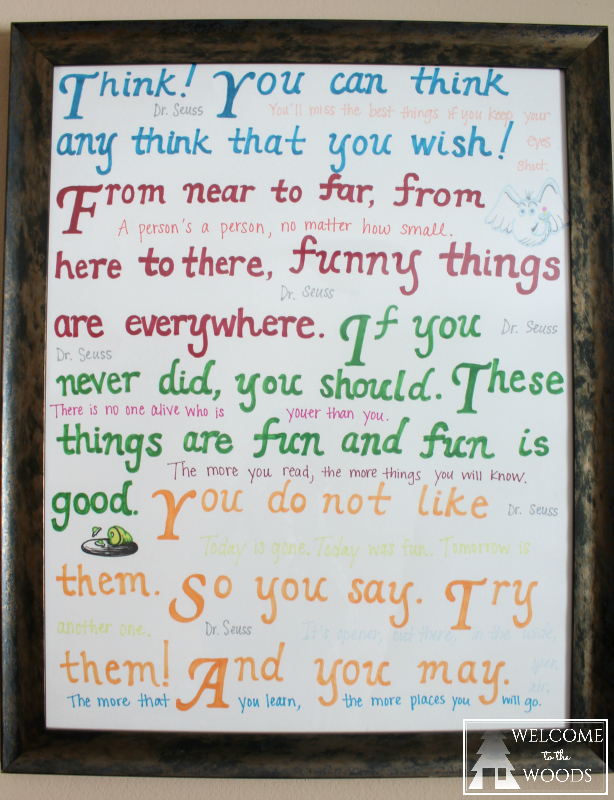 Think! You can think
Dr. Seuss You'll miss the best things if you keep your
any think that you wish! eyes
shut.
From near to far, from
A person's a person, no matter how small.
here to there, funny things
Dr. Seuss
are everywhere. If you Dr. Seuss
Dr. Seuss
never did, you should. These
There is no one alive who is youer than you.
things are fun and fun is
The more you read, the more things you will know.
good. You do not like Dr. Seuss
Today is gone. Today was fun. Tomorrow is
them. So you say. Try
another one. Dr. Seuss It's opener, out there, in the wide,
open
air.
them! And you may.
The more that you learn, the more places you will go.
WELCOME
to the
WOODS